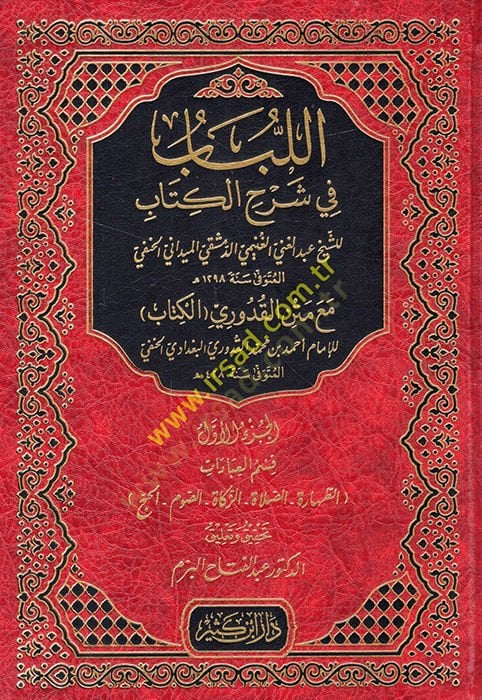 اللُّبَابُ
فِي شَرْحِ الكِتَابِ
للشّيخ عبد الغني الغنيمي الدمشقي الميداني الحنفي
المتوفى سنة ١٢٩٨ هـ
مَعَ مَتْنِ القُدُورِي (الكِتَاب)
للإمام أحمد بن محمد القدوري البغدادي الحنفي
المتوفى سنة ٤٢٨ هـ
الجُزءُ الأَوَّلُ
قسم العبادات
(الطهارة - الصلاة - الزكاة - الصوم - الحج)
تحقيق وتعليق
الدكتور عبد الفتاح البزم
دار ابن كثير
www.irsad.com.tr